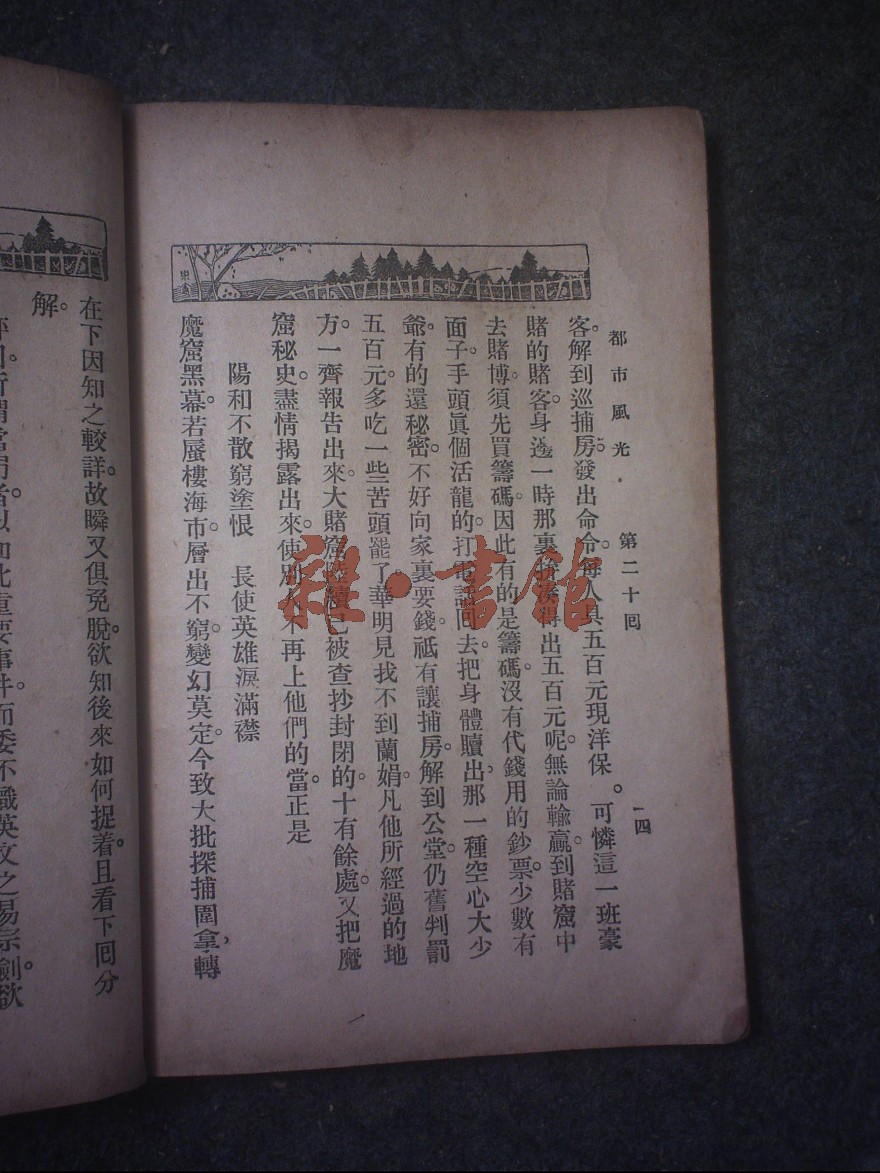 都市風光　第二十囘　一四
客。解到巡捕房。發出命令。每人具五百元現洋保。可憐這一班豪
賭的賭客。身邊一時那裏拚得出五百元呢。無論輸贏。到賭窟中
去賭博。須先買籌碼。因此有的是籌碼。沒有代錢用的鈔票。少數有
面子。手頭眞個活龍的。打電話回去。把身體贖出，那一種空心大少
爺。有的還秘密。不好向家裏要錢。祗有讓捕房解到公堂。仍舊判罰
五百元。多吃一些苦頭罷了。華明見找不到蘭娟。凡他所經過的地
方。一齊報告出來。大賭窟陸續已被查抄封閉的。十有餘處。又把魔
窟秘史。盡情揭露出來。使別人不再上他們的當。正是
陽和不散窮塗恨　長使英雄淚滿襟
魔窟黑幕。若蜃樓海市。層出不窮。變幻莫定。今致大批探捕圍拿，轉
在下因知之較詳。故瞬又俱免脫。欲知後來如何捉着。且看下囘分
解。
如此重要事件。而委不識英文之易宗劍。欲
雜·書館